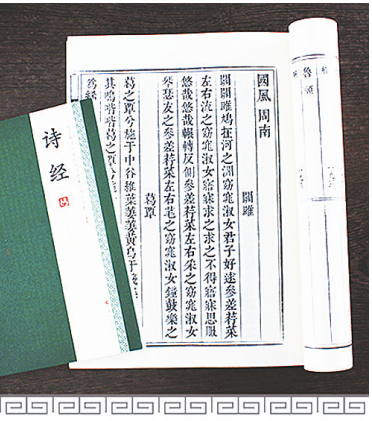 魯頌
國風 周南
關雎
關關雎鳩在河之洲窈窕淑女君子好逑參差荇菜
左右流之窈窕淑女寤寐求之求之不得寤寐思服
悠哉悠哉輾轉反側參差荇菜左右采之窈窕淑女
琴瑟友之參差荇菜左右芼之窈窕淑女鐘鼓樂之
葛覃
葛之覃兮施于中谷維葉萋萋黃鳥于
其鳴喈喈葛之覃兮
诗经